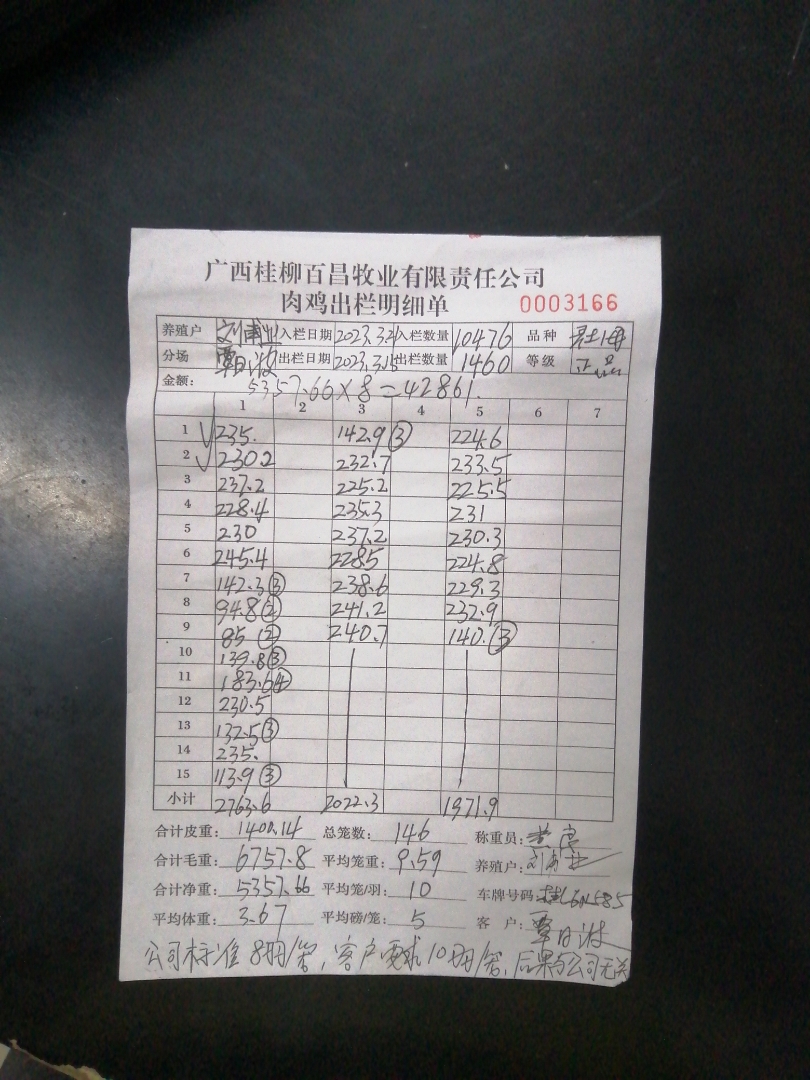 广西桂柳百昌牧业有限责任公司
肉鸡出栏明细单 0003166
养殖户 入栏日期 2023.3.2 入栏数量 10476 品种
分场 覃日波 出栏日期 2023.3.1 出栏数量 1460 等级 正品
金额: 5357.66×8=42861.
1 2 3 4 5 6 7
1 235. 142.9③ 224.6
2 230.2 232.7 233.5
3 237.2 225.2 225.5
4 228.4 235.3 231
5 230 237.2 230.3
6 245.4 228.5 224.8
7 142.3③ 238.6 229.3
8 94.8② 241.2 232.9
9 85② 240.7 140.1③
10 139.8③
11 183.6④
12 230.5
13 132.5③
14 235.
15 113.9③
小计 2763.6 2022.3 1971.9
合计皮重: 1400.14 总笼数: 146 称重员:
合计毛重: 6757.8 平均笼重: 9.59 养殖户:
合计净重: 5357.66 平均笼/羽: 10 车牌号码:
平均体重: 3.67 平均磅/笼: 5 客户: 覃日波
公司标准8羽/笼,客户要求10羽/笼,后果与公司无关